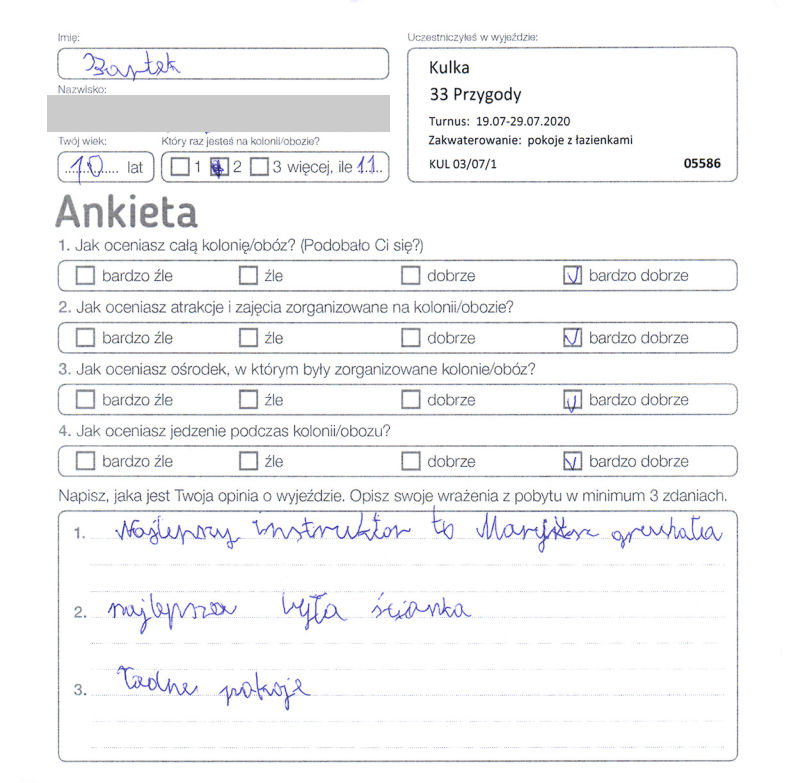 Imię:
Bartek
Nazwisko:
Twój wiek:
10 lat
Który raz jesteś na kolonii/obozie?
1 2 3 więcej, ile 11
Uczestniczyłeś w wyjeździe:
Kulka
33 Przygody
Turnus: 19.07-29.07.2020
Zakwaterowanie: pokoje z łazienkami
KUL 03/07/1 05586
Ankieta
1. Jak oceniasz całą kolonię/obóz? (Podobało Ci się?)
bardzo źle źle dobrze bardzo dobrze
2. Jak oceniasz atrakcje i zajęcia zorganizowane na kolonii/obozie?
bardzo źle źle dobrze bardzo dobrze
3. Jak oceniasz ośrodek, w którym były zorganizowane kolonie/obóz?
bardzo źle źle dobrze bardzo dobrze
4. Jak oceniasz jedzenie podczas kolonii/obozu?
bardzo źle źle dobrze bardzo dobrze
Napisz, jaka jest Twoja opinia o wyjeździe. Opisz swoje wrażenia z pobytu w minimum 3 zdaniach.
1. Najlepszy instruktor to
2. najlepsza była ścianka
3. Ładne pokoje